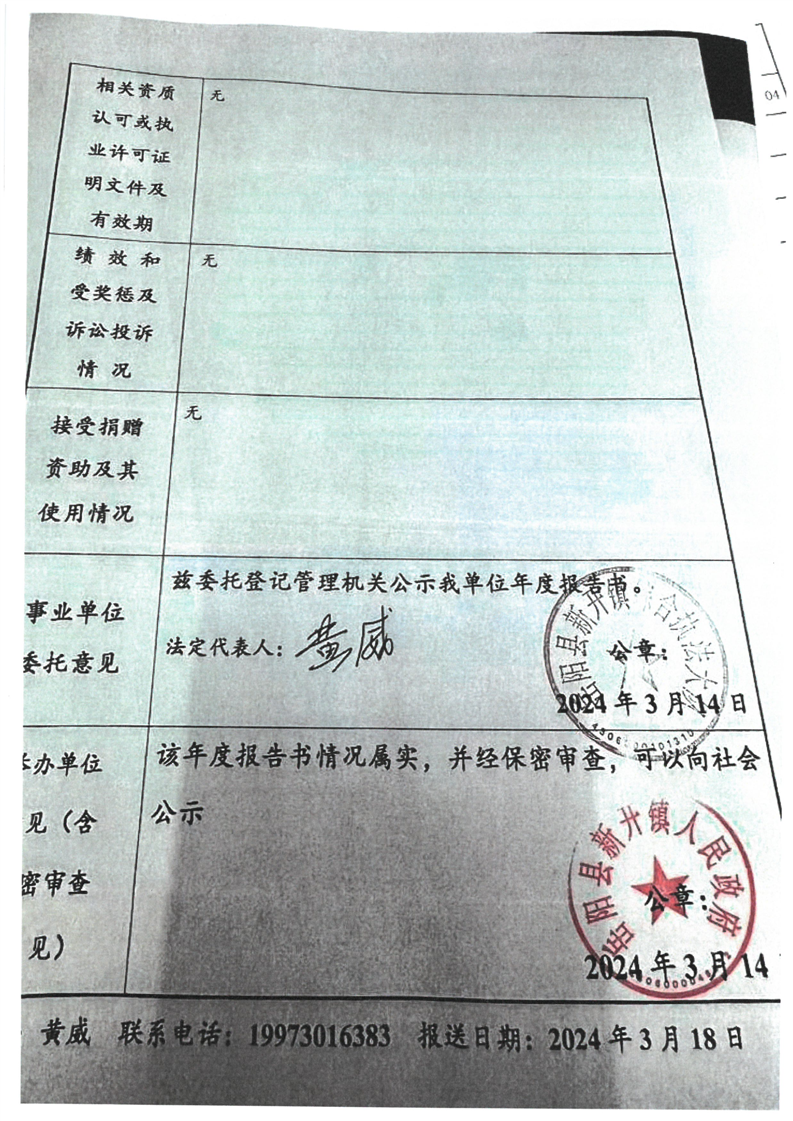 04
相关资质
认可或执
业许可证
明文件及
有效期
无
绩效和
受奖惩及
诉讼投诉
情况
无
接受捐赠
资助及其
使用情况
无
事业单位
委托意见
兹委托登记管理机关公示我单位年度报告书。
法定代表人：黄威
公章：
2024年3月14日
岳阳县新开镇综合执法大队
办单位
见（含
密审查
见）
该年度报告书情况属实，并经保密审查，可以向社会
公示
岳阳县新开镇人民政府
公章：
2024年3月14
黄威 联系电话：19973016383 报送日期：2024年3月18日